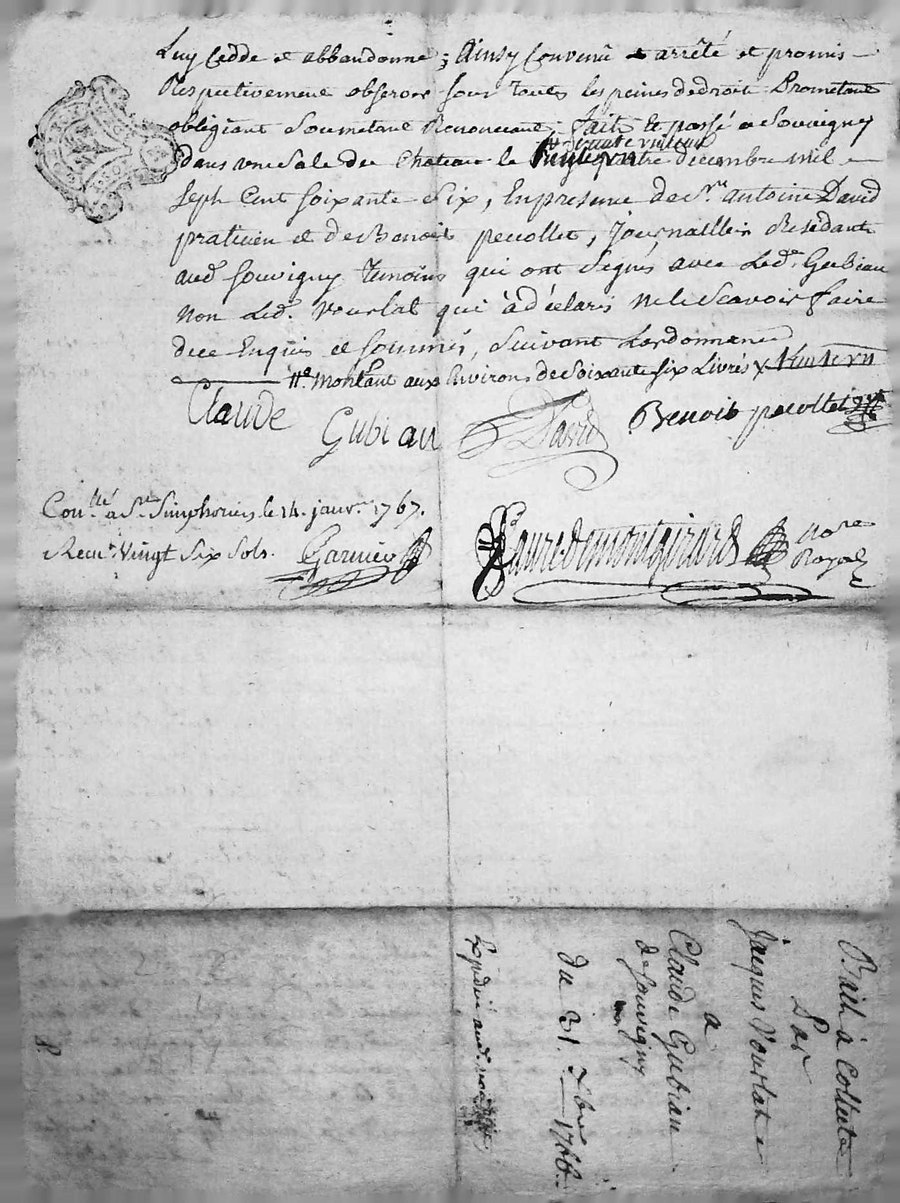 Luy Cedde et abbandonne ; Ainsy Convenu arrêté et promis
Respectivement observer sous toutes les peines de droit Prometant
obligeant Soumetant Renonceant, fait et passé a Souvigny
dans une Sale du Chateau le decembre mil
Sept Cent soixante Six, En presence de Sr. antoine David
praticien et de Benoit pecollet, Journaillier Residants
aud. Souvigny Temoins qui ont Signés avec Led. Gubian
non Led. Vourlat qui à déclaré ne le Scavoir faire
de ce Enquis et sommés, Suivant Lordonnance
montant aux Environs de Soixante six Livres
Claude Gubian David Benoit pecollet
Conllé. a St. Simphorien le 14. janvr. 1767.
Recu. Vingt Six Sols. Garnier
nore
Royal
Bail à
Par
Jacques Vourlat
a
Claude Gubian
de Souvigny
du 31. Xbre 1766.
Expedié aud.